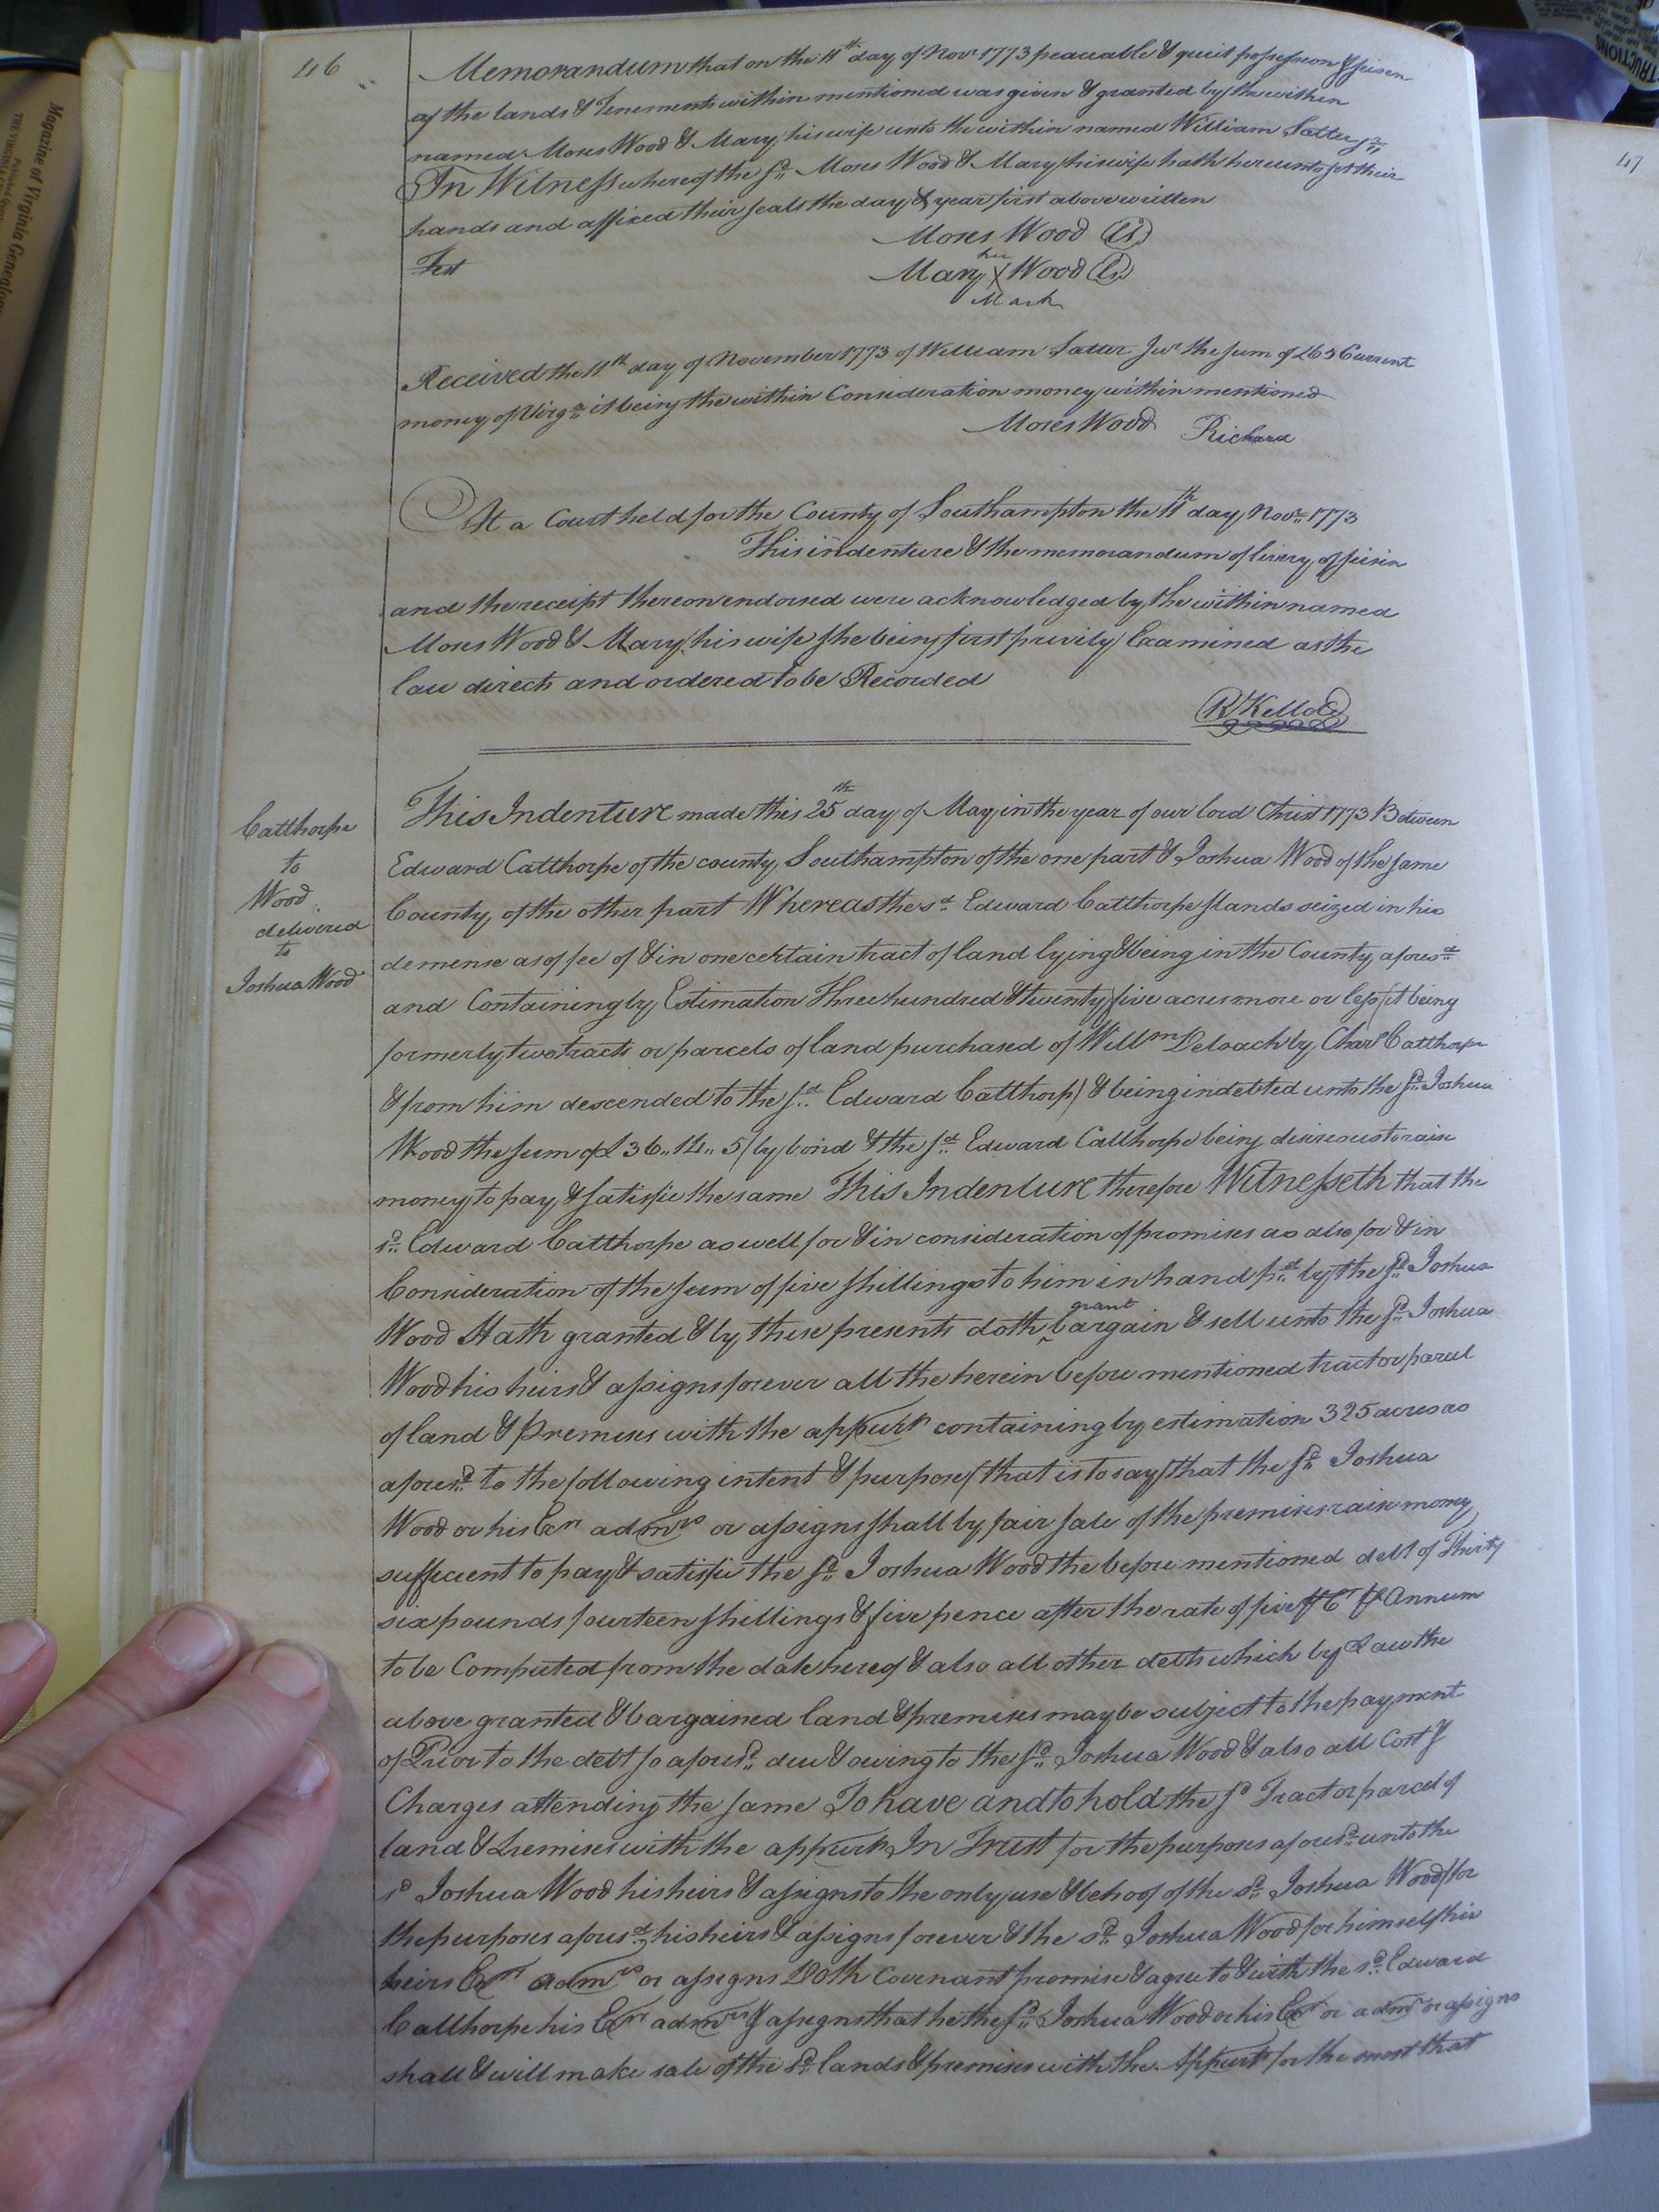 46
Memorandum that on the 11th day of Novr 1773 peaceable & quiet possession & seisen
of the lands & Tenements within mentioned was given & granted by the within
named Moses Wood & Mary his wife unto the within named William
In Witness whereof the sd Moses Wood & Mary his wife hath hereunto set their
hands and affixed their seals the day & year first above written
Moses Wood (LS)
Test
her
Mary X Wood (LS)
Mark
Received the 11th day of November 1773 of William Junr the sum of £65 Current
money of Virga it being the within Consideration money within mentioned
Moses Wood Richard
At a Court held for the County of Southampton the 11th day Novr 1773
This indenture & the memorandum of livery of seisin
and the receipt thereon endorsed were acknowledged by the within named
Moses Wood & Mary his wife she being first privily Examined as the
law directs and ordered to be Recorded
R Kello
Calthorpe
to
Wood
delivered
to
Joshua Wood
This Indenture made this 25th day of May in the year of our lord Christ 1773 Between
Edward Calthorpe of the county Southampton of the one part & Joshua Wood of the same
County of the other part Whereas the sd Edward Calthorpe stands seized in his
demense as of fee of & in one certain tract of land lying & being in the County aforesd
and Containing by Estimation Three hundred & twenty five acres more or less (it being
formerly two tracts or parcels of land purchased of Willm Deloach by Chars Calthorpe
& from him descended to the sd Edward Calthorp) & being indebted unto the sd Joshua
Wood the sum of £36..14..5 (by bond & the sd Edward Calthorpe being desireous to raise
money to pay & satisfie the same This Indenture therefore Witnesseth that the
sd Edward Calthorpe as well for & in consideration of promises as also for & in
Consideration of the sum of five shillings to him in hand pd by the sd Joshua
grant
Wood Hath granted & by these presents doth ^ bargain & sell unto the sd Joshua
Wood his heirs & assigns forever all the herein before mentioned tract or parcel
of land & Premises with the appurts containing by estimation 325 acres as
aforesd to the following intent & purpose (that is to say) that the sd Joshua
Wood or his Exrs admrs or assigns shall by fair sale of the premises raise money
suffecient to pay & satisfie the sd Joshua Wood the before mentioned debt of Thirty
six pounds fourteen shillings & five pence after the rate of five Ct Annum
to be Computed from the date hereof & also all other debts which by Law the
above granted & bargained land & premises may be subject to the payment
of Prior to the debt so aforesd due & owing to the sd Joshua Wood & also all Cost &
Charges attending the same To have and to hold the sd Tract or parcel of
land & Premises with the appurts In Trust for the purposes aforesd unto the
sd Joshua Wood his heirs & assigns to the only use & behoof of the sd Joshua Wood for
the purposes aforesd his heirs & assigns forever & the sd Joshua Wood for himself his
heirs Exrs admrs or assigns Doth Covenant promise & agree to & with the sd Edward
Calthorpe his Exrs admrs & assigns that he the sd Joshua Wood or his Exrs or admrs or assigns
shall & will make sale of the sd lands & premises with the Appurts for the most that
47
Magazine of Virginia Genealogy